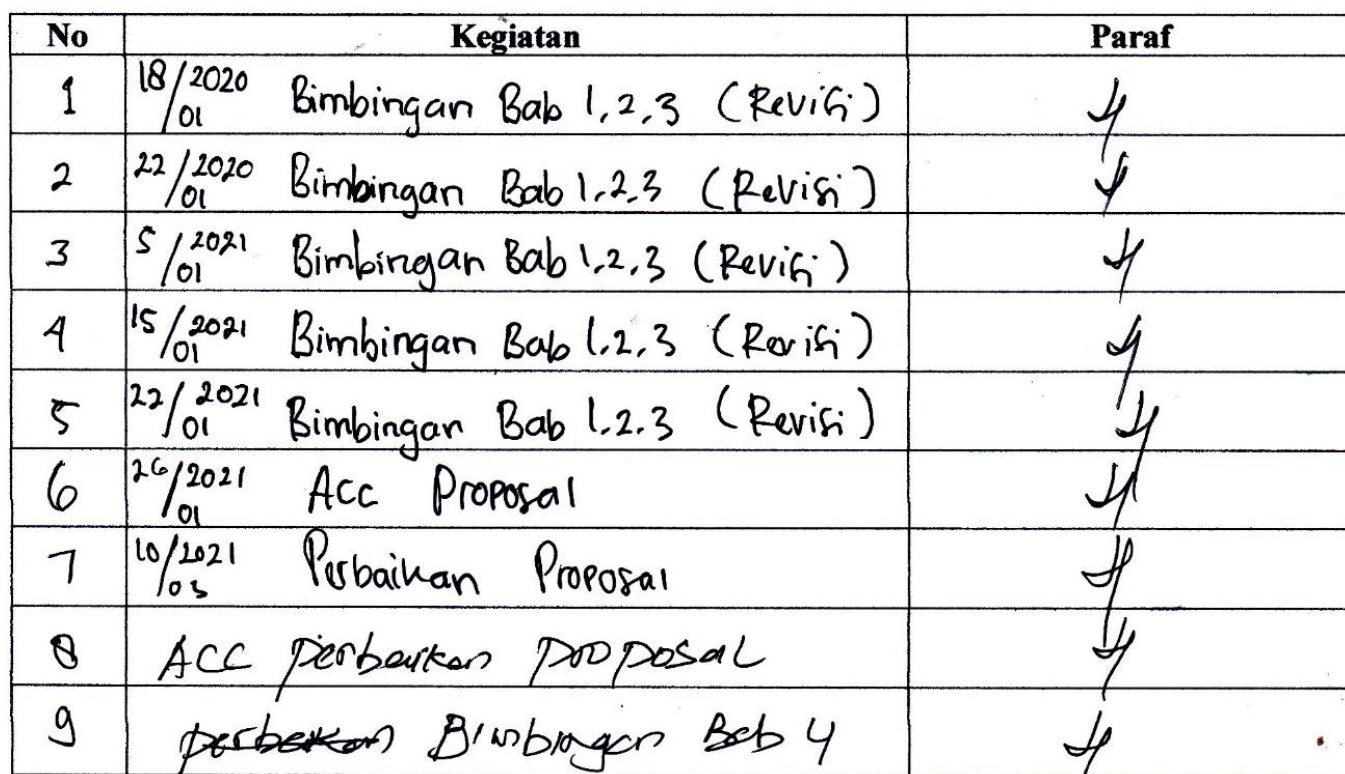 No Kegiatan Paraf
1 18/01/2020 Bimbingan Bab 1,2,3 (Revisi)
2 22/01/2020 Bimbingan Bab 1,2,3 (Revisi)
3 5/01/2021 Bimbingan Bab 1,2,3 (Revisi)
4 15/01/2021 Bimbingan Bab 1,2,3 (Revisi)
5 22/01/2021 Bimbingan Bab 1,2,3 (Revisi)
6 26/01/2021 Acc Proposal
7 10/03/2021 Perbaikan Proposal
8 ACC perbaikan proposal
9 perbaikan Bimbingan Bab 4